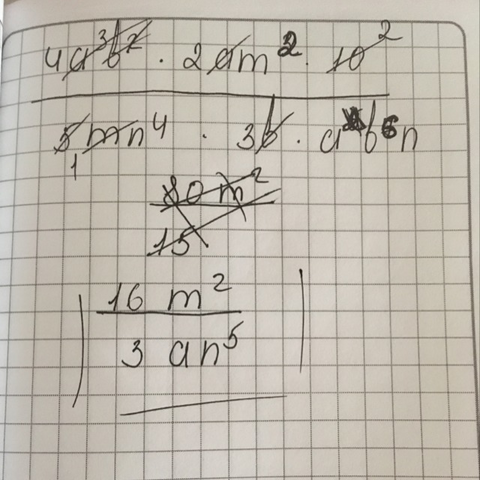 4a³b² · 2am² · 10²
5mn⁴ · 3b · a b n
1
80 m²
15
16 m²
3 an⁵